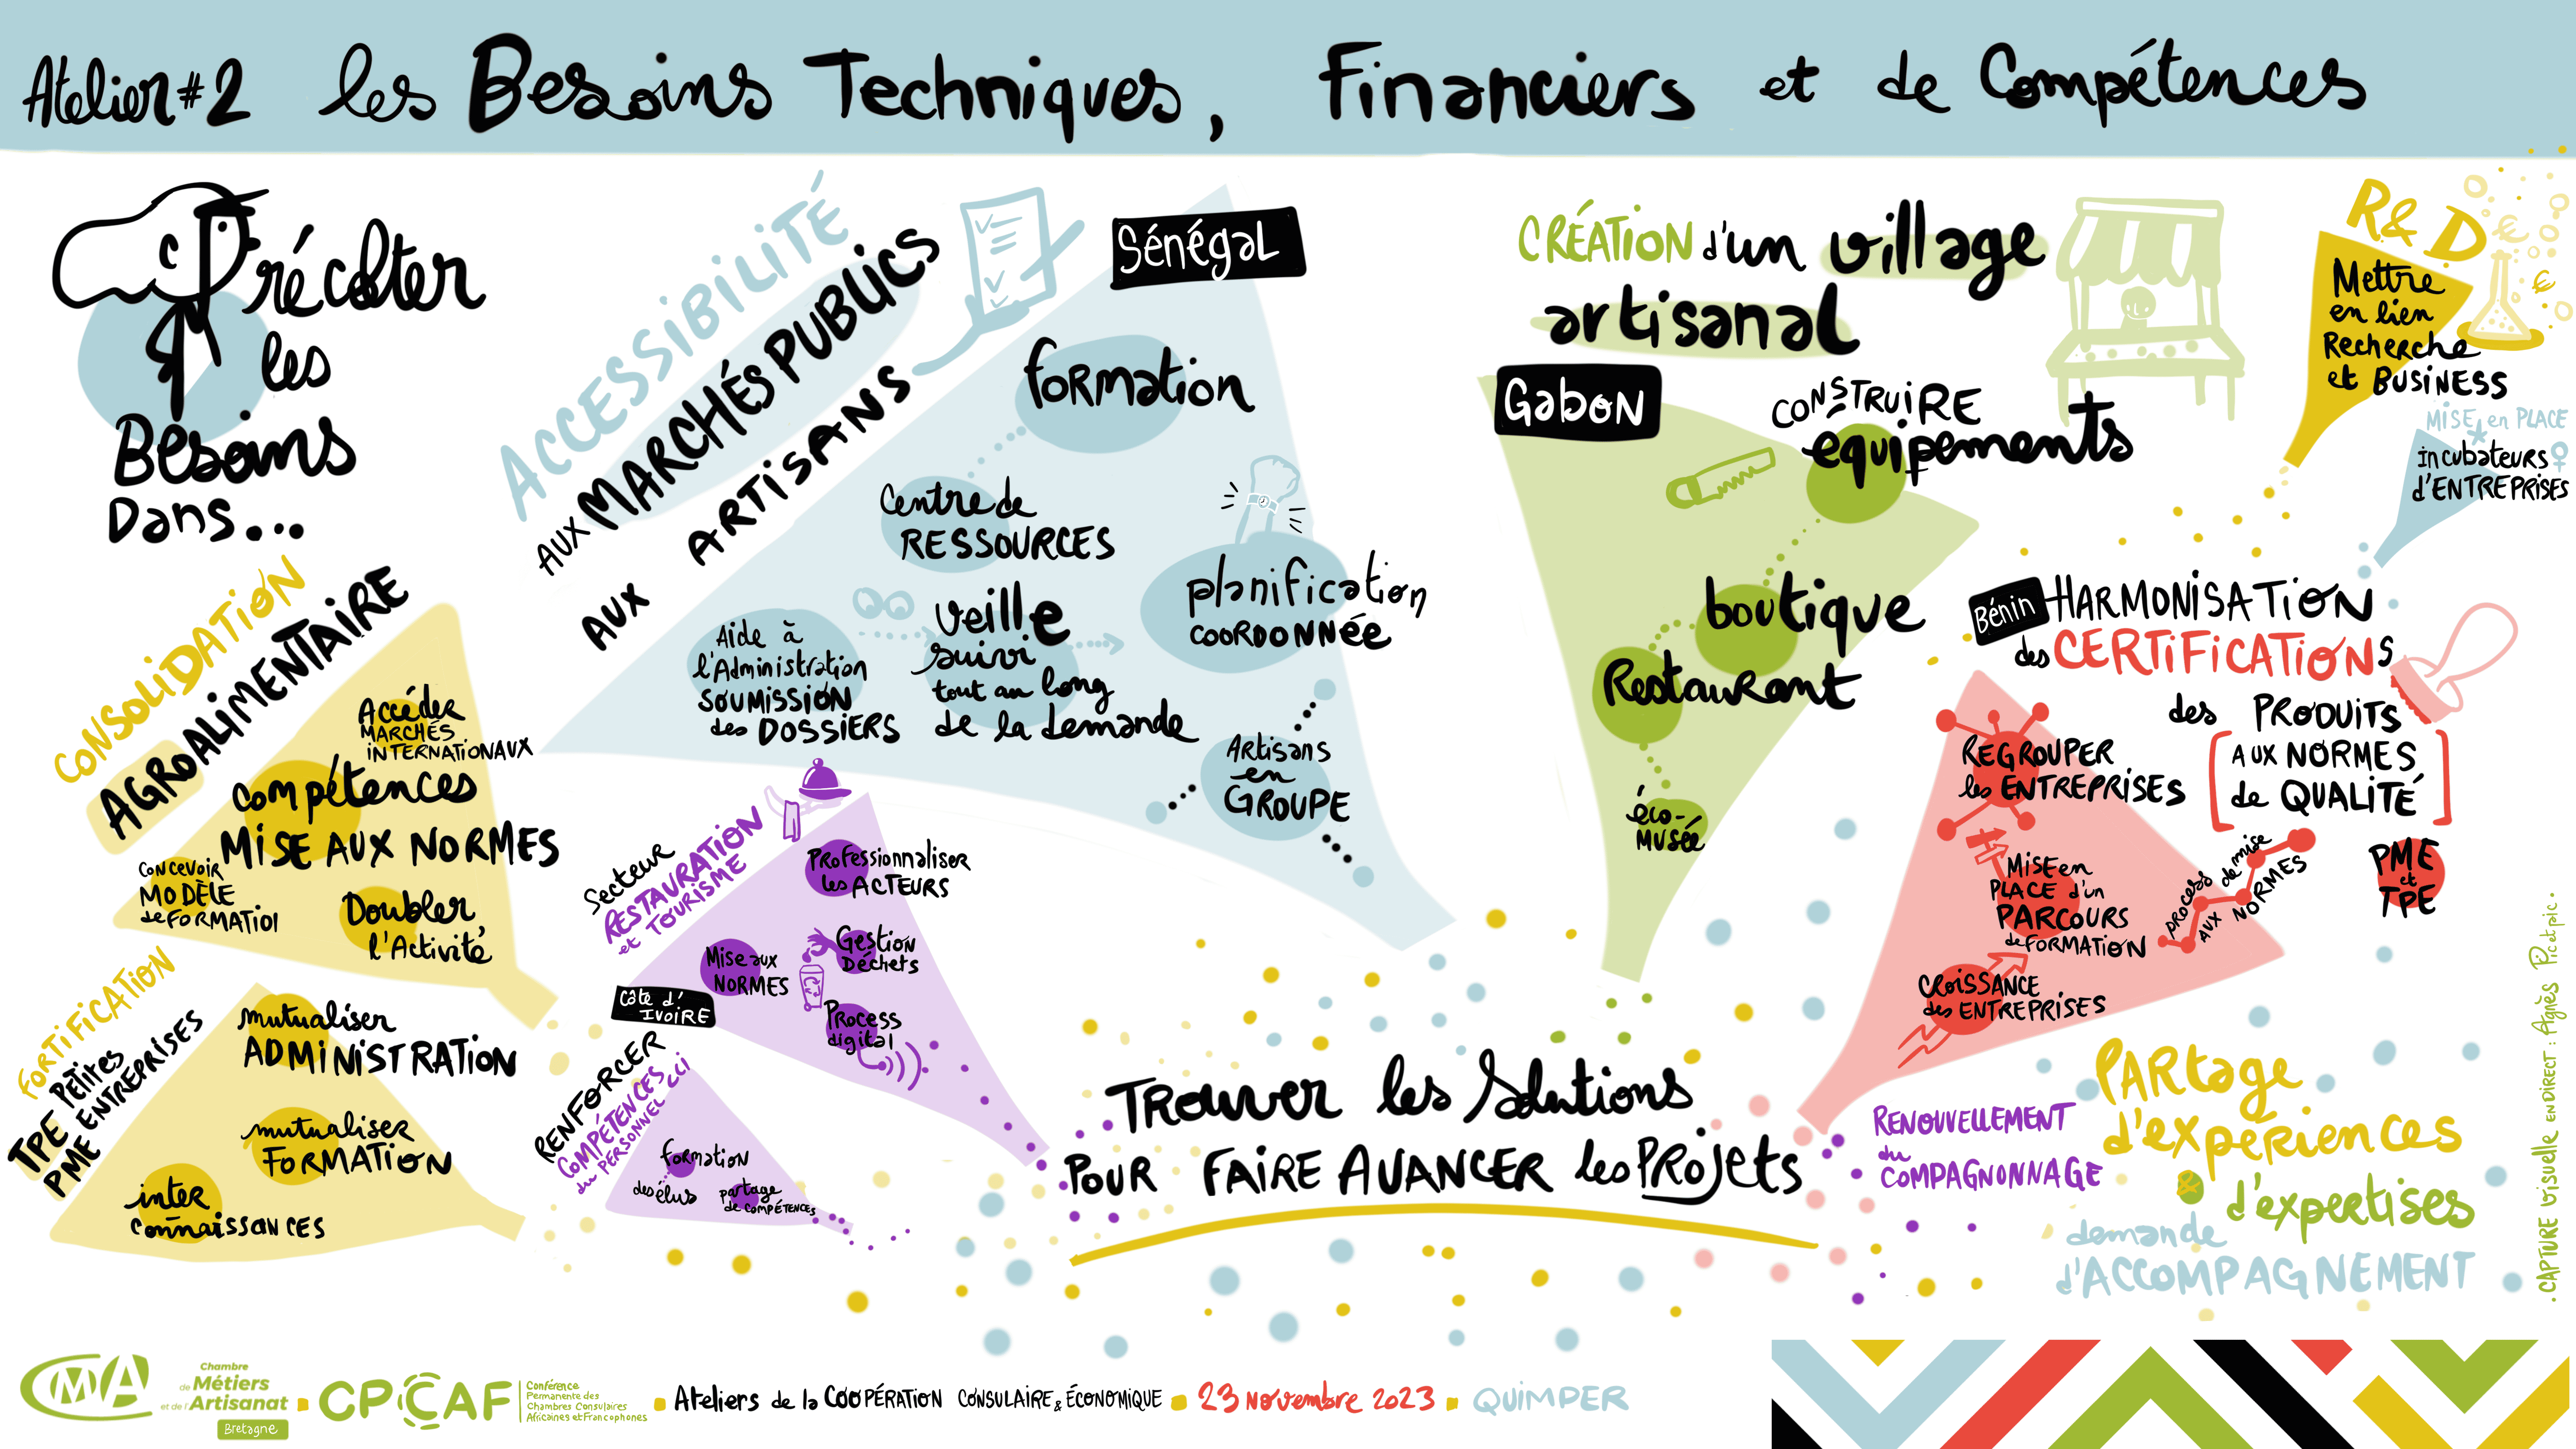 Atelier#2 les Besoins Techniques, Financiers et de Compétences
récolter
les
Besoins
Dans...
CONSOLIDATION
AGROALIMENTAIRE
Accéder
MARCHÉS
INTERNATIONAUX
compétences
MISE AUX NORMES
CONCEVOIR
MODÈLE
de FORMATION
Doubler
l'Activité
FORTIFICATION
TPE Petites
PME ENTREPRISES
mutualiser
ADMINISTRATION
mutualiser
FORMATION
inter
connaissances
ACCESSIBILITÉ
AUX MARCHÉS PUBLICS
AUX ARTISANS
Sénégal
formation
Centre de
RESSOURCES
Aide à
l'Administration
SOUMISSION
des DOSSIERS
veille
suivi
tout au long
de la demande
planification
COORDONNÉE
Artisans
en
GROUPE
Secteur
RESTAURATION
et TOURISME
Professionnaliser
les ACTEURS
Mise aux
NORMES
Gestion
Déchets
Process
digital
Côte d'
Ivoire
RENFORCER
COMPÉTENCES CCI
du PERSONNEL
formation
des élus
partage
de compétences
CRÉATION d'un village
artisanal
Gabon
CONSTRUIRE
équipements
boutique
Restaurant
éco-
musée
R&D
Mettre
en lien
Recherche
et BUSINESS
MISE en PLACE
incubateurs
d'ENTREPRISES
Bénin
HARMONISATION
des CERTIFICATIONS
des PRODUITS
[AUX NORMES
de QUALITÉ]
REGROUPER
les ENTREPRISES
MISE en
PLACE d'un
PARCOURS
de FORMATION
process de mise
AUX NORMES
PME
et
TPE
CROISSANCE
des ENTREPRISES
TROUVER les Solutions
POUR FAIRE AVANCER les PROJETS
RENOUVELLEMENT
du
COMPAGNONNAGE
PARtage
d'expériences
&
d'expertises
demande
d'ACCOMPAGNEMENT
. CAPTURE VISUELLE EN DIRECT : Agnès Pic et pic .
CMA
Chambre
de Métiers
et de l'Artisanat
Bretagne
CPCCAF
Conférence
Permanente des
Chambres Consulaires
Africaines et Francophones
Ateliers de la COOPÉRATION CONSULAIRE & ÉCONOMIQUE
23 Novembre 2023
QUIMPER